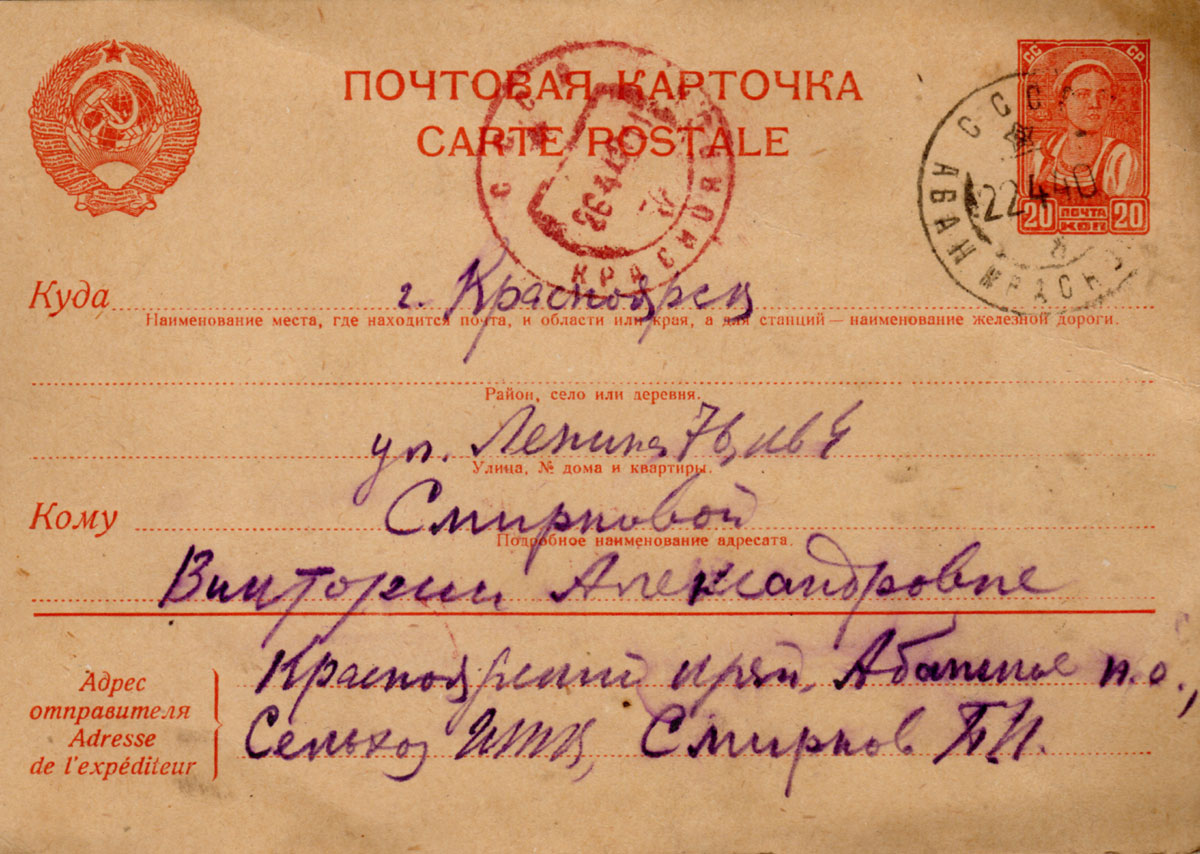 ПОЧТОВАЯ КАРТОЧКА
CARTE POSTALE
СССР
КРАСНОЯРСК
26 4 40
СССР
АБАН КРАСНОЯР
22 4 40
СС СР
20 ПОЧТА КОП 20
Куда г. Красноярск
Наименование места, где находится почта, и области или края, а для станций — наименование железной дороги.
Район, село или деревня.
ул. Ленина 7
Улица, № дома и квартиры.
Кому Смирновой
Подробное наименование адресата.
Виктории Александровне
Адрес отправителя
Adresse de l'expéditeur
Красноярский край, Абанское п.о.,
Сельхоз Смирнов П.И.